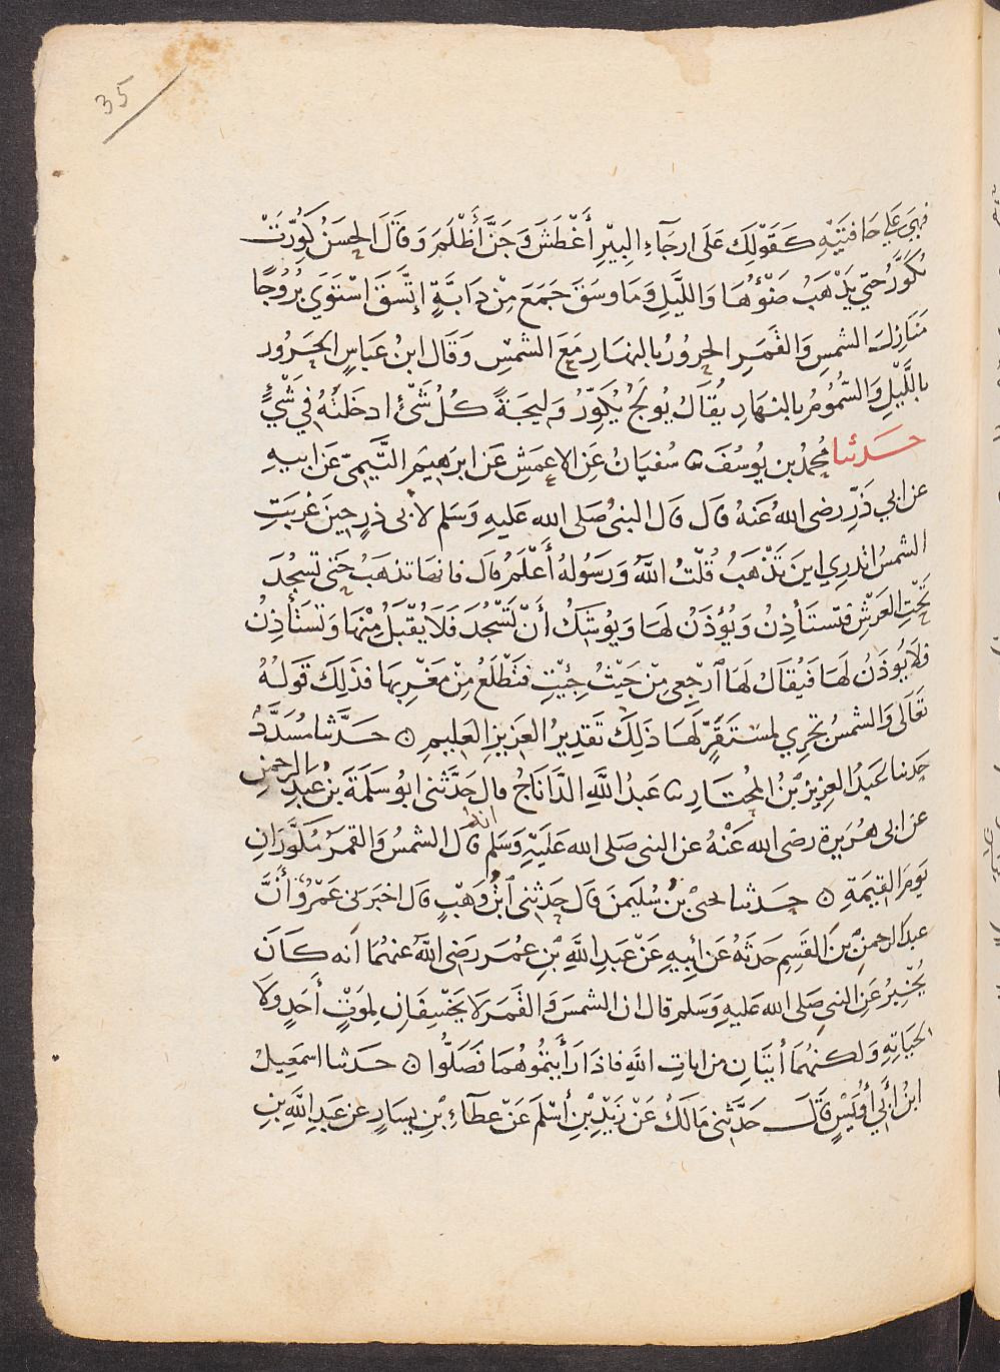 35
فهي علي حافتيه كقولك على ارجاء البير أغطش وجن أظلم وقال الحسن كورت
تكور حتي يذهب ضوءها والليل وما وسق جمع من دابة إتسق استوي بروجا
منازل الشمس والقمر الحرور بالنهار مع الشمس وقال ابن عباس الحرور
بالليل والسموم بالنهار يقال يولج يكور وليجة كل شئ ادخلته في شيء
حدثنا محمد بن يوسف ثنا سفيان عن الاعمش عن ابرهيم التيمي عن ابيه
عن ابي ذر رضى الله عنه قال قال النبي صلى الله عليه وسلم لابى ذر حين غربت
الشمس اتدري اين تذهب قلت الله ورسوله أعلم قال فانها تذهب حتى تسجد
تحت العرش فتستأذن ويؤذن لها ويوشك أن تسجد فلا يقبل منها وتستأذن
فلا يوذن لها فيقال لها ارجعي من حيث جيت فتطلع من مغربها فذلك قوله
تعالى والشمس تجري لمستقر لها ذلك تقدير العزيز العليم ه حدثنا مسدد
حدثنا عبد العزيز بن المختار ثنا عبد الله الداناج قال حدثنى ابو سلمة بن عبد الرحمن
عن ابى هريرة رضى الله عنه عن النبى صلى الله عليه وسلم انه قال الشمس والقمر مكوران
يوم القيمة ه حدثنا يحيى بن سليمن قال حدثنى ابن وهب قال اخبرنى عمرو أن
عبد الرحمن بن القسم حدثه عن أبيه عن عبد الله بن عمر رضى الله عنهما انه كان
يخبر عن النبي صلى الله عليه وسلم قال ان الشمس والقمر لا يخسفان لموت أحد ولا
لحياته ولكنهما أيتان من ايات الله فاذا رأيتموهما فصلوا ه حدثنا اسمعيل
ابن أبي أويس قال حدثنى مالك عن زيد بن أسلم عن عطاء بن يسار عن عبد الله بن